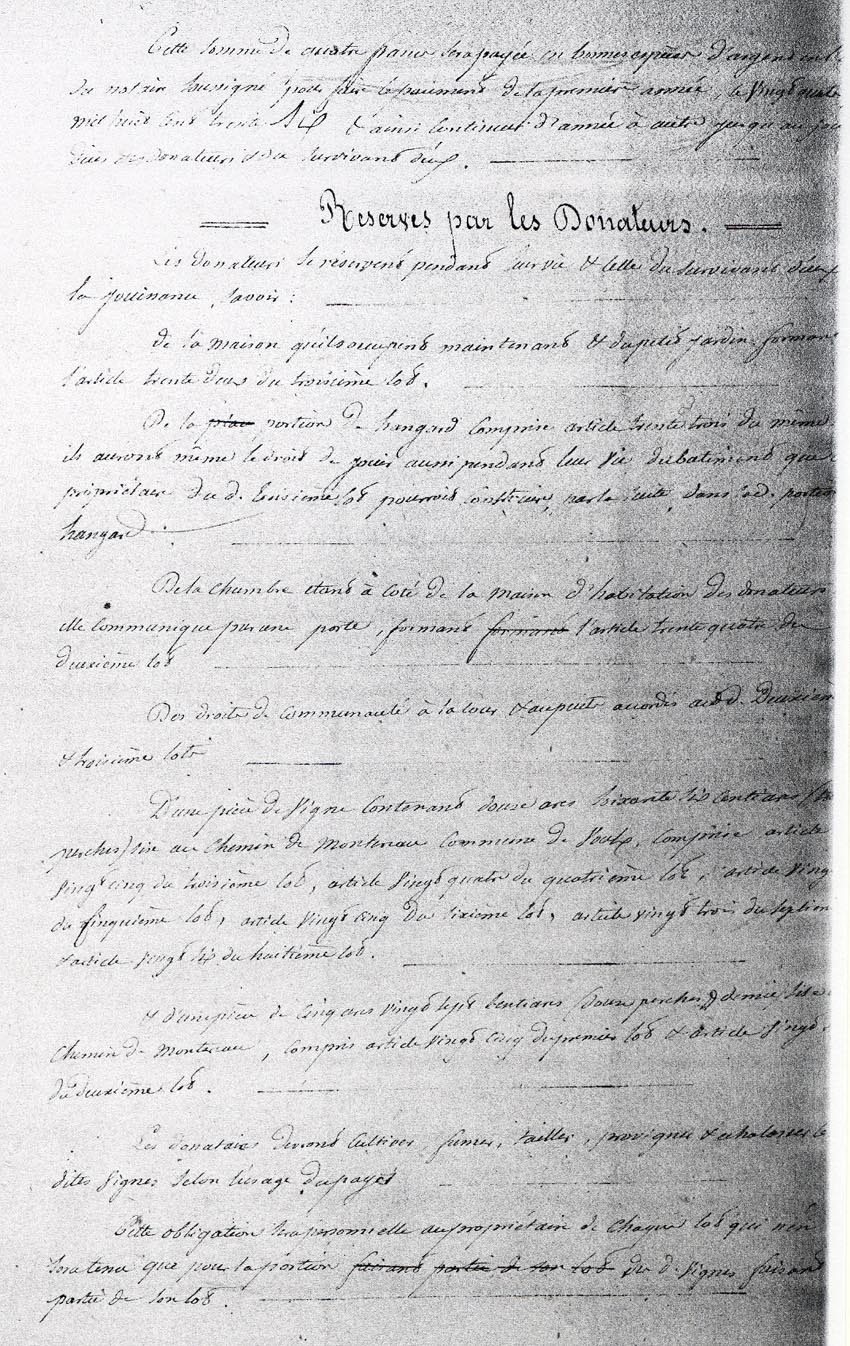 Cette somme de quatre francs sera payée en bonnes espèces d'argent en l'
du notaire soussigné pour faire le paiement de la première année, le vingt quatre
mil huit cent trente six & ainsi continuer d'année à autre jusqu'au jour
décès des donateurs & du survivant d'eux.
Reserves par les Donateurs.
Les donateurs se réservent pendant leur vie & celle du survivant d'eux
la jouissance, savoir :
de la maison qu'ils occupent maintenant & du petit jardin formant
l'article trente deux du troisième lot.
De la place portion de hangard comprise article trente trois du même
ils auront même le droit de jouir aussi pendant leur vie du batiment que
propriétaire du d. troisième lot pourroit construire, par la suite, dans lad. portion
hangard.
De la chambre étant à coté de la maison d'habitation des donateurs
elle communique par une porte, formant formant l'article trente quatre du
deuxième lot
Des droits de communauté à la cour & au puits accordés aux d. deuxième
& troisième lots
D'une pièce de vigne contenant douze ares soixante six centiares
perches) sise au chemin de Montereau commune de Voulx, comprise article
vingt cinq du troisième lot, article vingt quatre du quatrième lot, article vingt
du cinquième lot, article vingt cinq du sixième lot, article vingt trois du septième
& article vingt six du huitième lot.
& d'une pièce de cinq ares vingt sept centiares (douze perches & demie) sise
chemin de Montereau, compris article vingt cinq du premier lot & article vingt
du deuxième lot.
Les donataires devront cultiver, fumer, tailler, provigner & échalasser les
dites vignes selon l'usage du pays
Cette obligation sera personnelle au propriétaire de chaque lot qui n'en
sera tenu que pour la portion faisant partie de son lot du d. vignes faisant
partie de son lot.